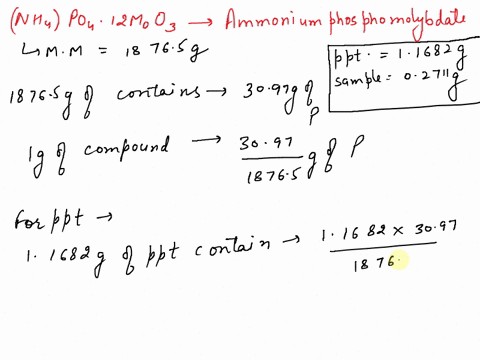 (NH4) PO4 · 12MoO3 → Ammonium phosphomolybdate
↳ M.M = 1876.5g
ppt. = 1.1682g
sample = 0.2711g
1876.5g of contains → 30.97g of P
1g of compound → 30.97/1876.5 g of P
For ppt →
1.1682g of ppt contain → 1.1682 × 30.97/1876.